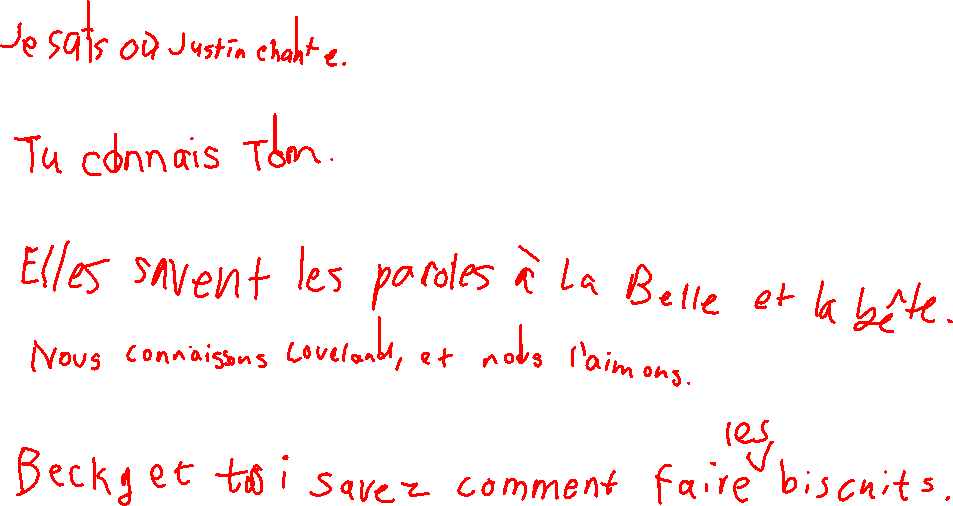 Je sais où Justin chante.
Tu connais Tom.
Elles savent les paroles à La Belle et la bête.
Nous connaissons Loveland, et nous l'aimons.
Becky et toi savez comment faire les biscuits.